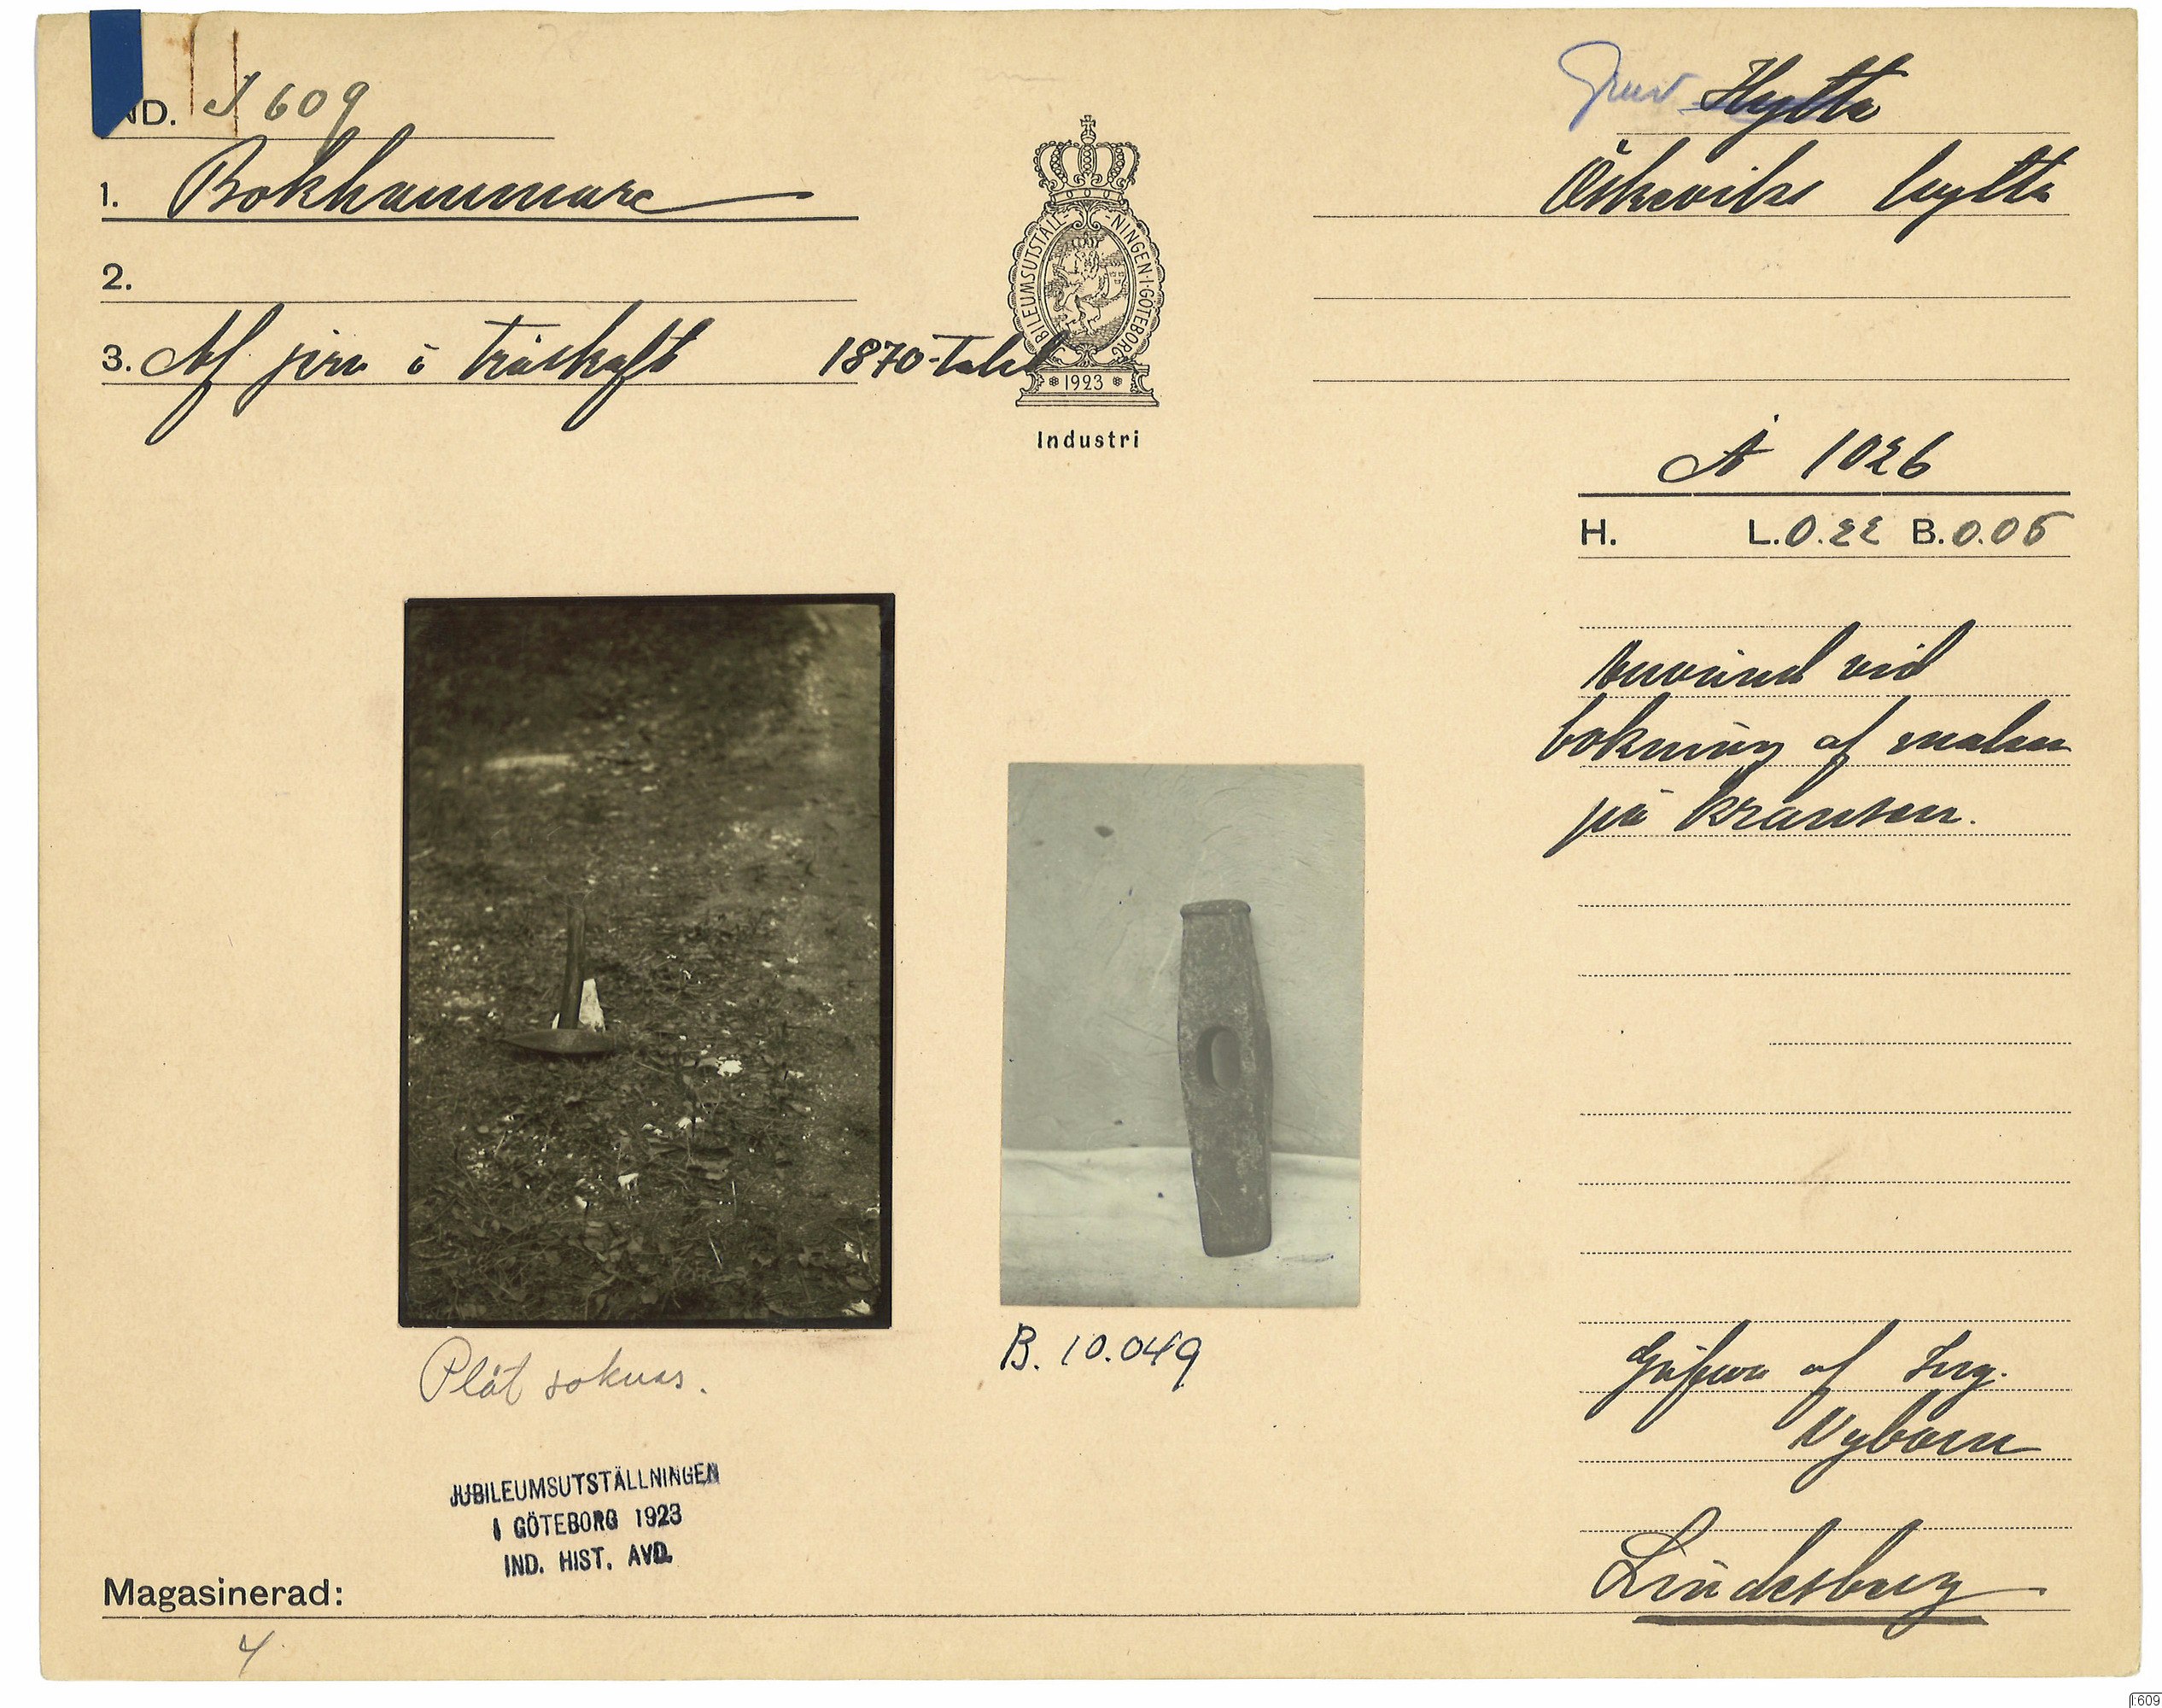 IND. I 609
Gruv Hytta
1. Bokhammare
Öskeviks hytta
2.
3. Af jern i träskaft 1870-talet
JUBILEUMSUTSTÄLLNINGEN·I·GÖTEBORG
1923
Industri
Å 1026
H. L.0.22 B.0.05
Använd vid
bokning af malm
på kransen.
B. 10.049
Plåt saknas.
Gifven af Ing.
Nybom
Lindesberg
JUBILEUMSUTSTÄLLNINGEN
I GÖTEBORG 1923
IND. HIST. AVD.
Magasinerad:
4
I:609